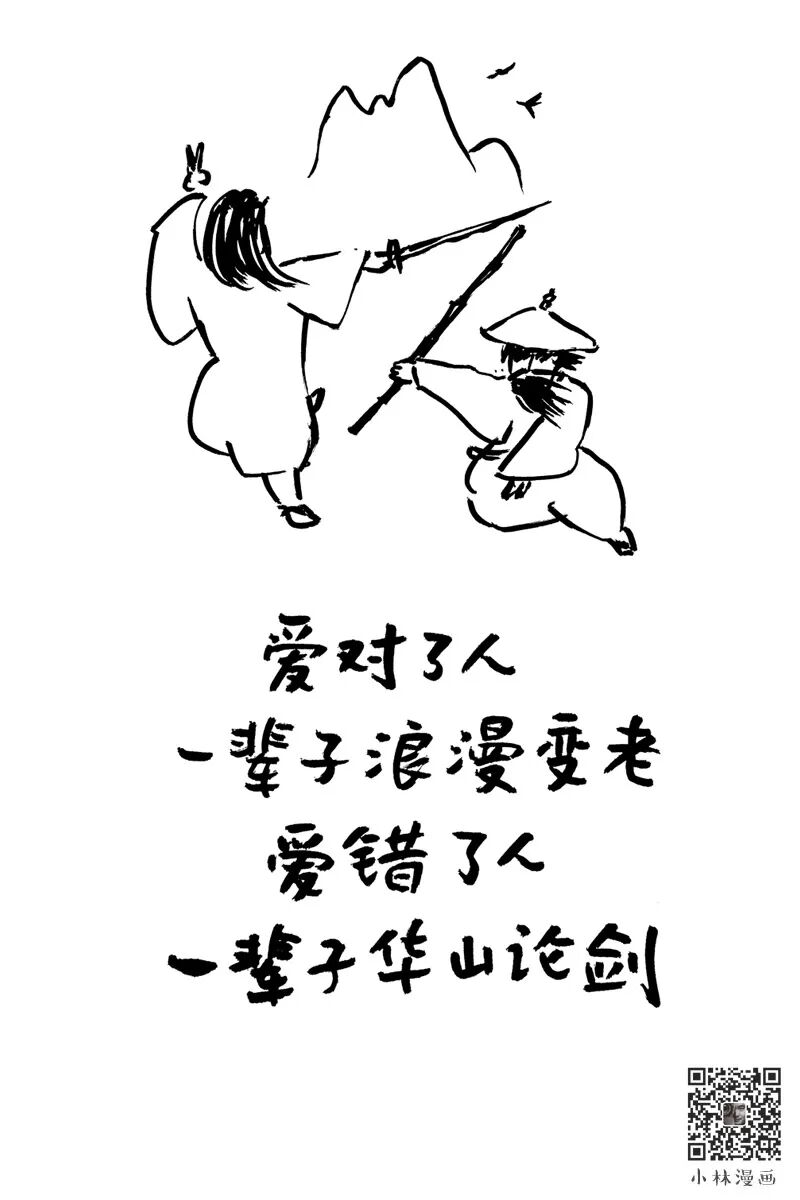 爱对了人
一辈子浪漫变老
爱错了人
一辈子华山论剑
小林漫画